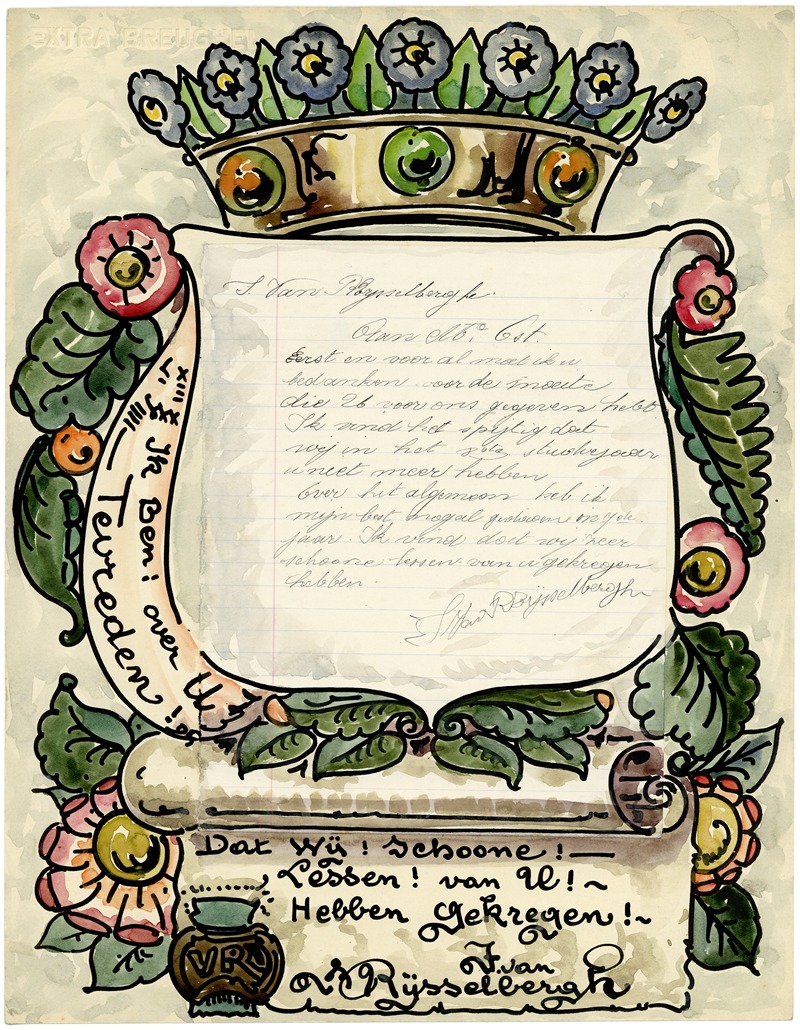 EXTRA BREUGHEL
J. Van Rijsselberghe.
Aan Mr. Cst.
Eerst en voor al moet ik u
bedanken voor de moeite
die U voor ons gegeven hebt
Ik vind het spijtig dat
wij in het studiejaar
u niet meer hebben
Over het algemeen heb ik
mijn best nogal gedaan in
jaar. Ik vind dat wij zeer
schoone lessen van u gekregen
hebben.
J Van Rijsselbergh
XIIII
Ik Ben! over U
Tevreden!!
Dat Wÿ! Schoone!—
Lessen! van U!~
Hebben Gekregen!~
J. van
Rÿsselbergh
VRŸ